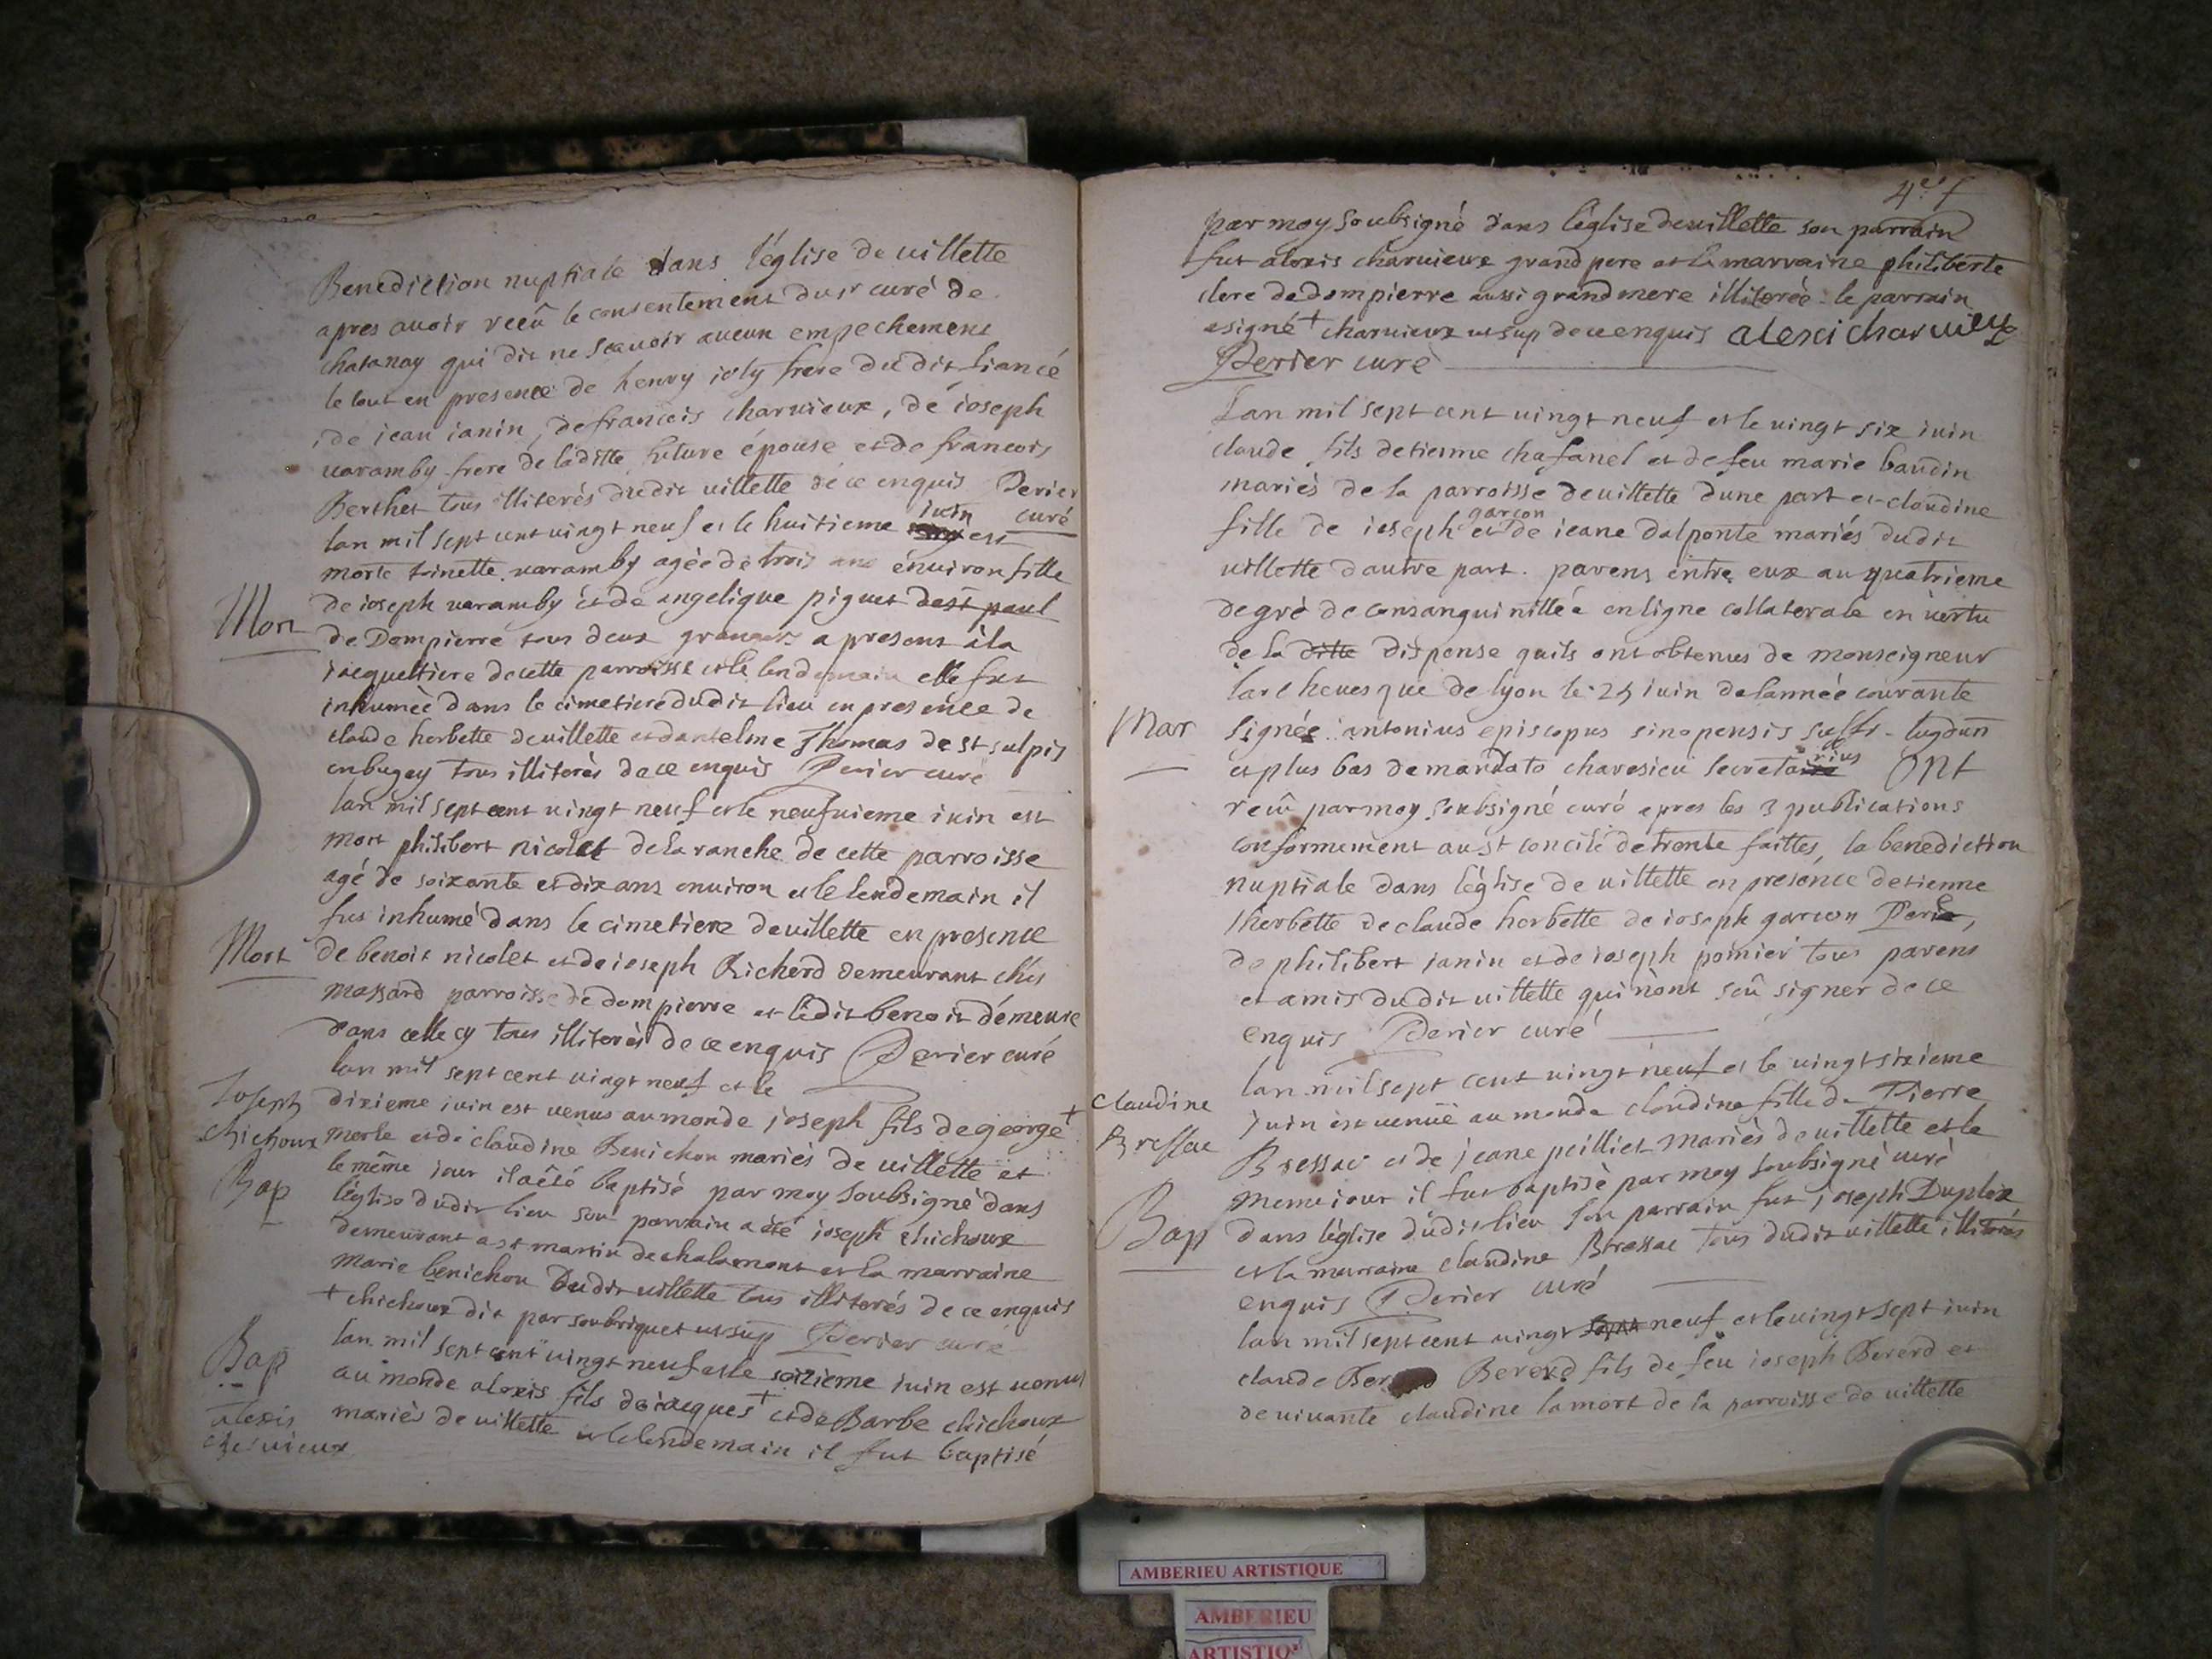 Benediction nuptiale dans l'église de uillette
apres auoir receû le consentement du sr curé de
chatanay qui dit ne scauoir aucun empechement
le tout en presence de henry ioly frere du dit fiancé
de jean ianin, de francois charuieux, de ioseph
uaramby frere de laditte future épouse et de francois
Berthet tous illiterés dudit uillette de ce enquis Perier
curé
lan mil sept cent uingt neuf et le huitieme iuin est
morte toinette uaramby agée de trois ans enuiron fille
Mort
de ioseph uaramby et de angelique piguet de st paul
de Dompierre tous deux grangers a present à la
iacquettiere de cette parroisse et le lendemain elle fut
inhumée dans le cimetiere dudit lieu en presence de
claude herbette de uillette et dantelme Thomas de st sulpis
en bugey tous illiterés de ce enquis Perier curé
lan mil sept cent uingt neuf et le neufuieme iuin est
mort philibert nicolet de la ranche de cette parroisse
agé de soixante et dix ans enuiron et le lendemain il
fut inhumé dans le cimetiere de uillette en presence
Mort
de benoit nicolet et de ioseph Richerd demeurant chés
massard parroisse de dompierre et ledit benoit demeure
dans celle cy tous illiterés de ce enquis Perier curé
lan mil sept cent uingt neuf et le
Joseph
dixieme iuin est uenus au monde joseph fils de george +
chichoux
merle et de claudine Benichon mariés de uillette et
Bap
le même iour il a été baptisé par moy soubsigné dans
l'église dudit lieu son parrain a été ioseph chichoux
demeurant a st martin de chalamont et la marraine
marie benichon dudit uillette tous illiterés de ce enquis
+ chichoux dit par soubriquet ut sup Perier curé
Bap
lan mil sept cent uingt neuf et le seizieme iuin est uenus
au monde alexis fils de iacques + et de Barbe chichoux
alexis
charuieux
mariés de uillette et le lendemain il fut baptisé
par moy soubsigné dans l'église de uillette son parrain
fut alexis charuieux grand pere et la marraine philiberte
clere de dompierre aussi grand mere illiterée le parrain
a signé + charuieux ut sup de ce enquis alexi charuieux
Perier curé
Lan mil sept cent uingt neuf et le uingt six iuin
claude fils detienne chafanel et de feu marie baudin
mariés de la parroisse de uillette dune part et claudine
fille de ioseph garcon et de ieane dalponte mariés dudit
uillette dautre part. parens entre eux au quatrieme
degré de consanguinittée en ligne collaterale en uertu
de la ditte dispense quils ont obtenues de monseigneur
larcheuesque de lyon le 25 iuin de lannée courante
Mar
signée antonius episcopus sinopensis suffr. lugdun
et plus bas de mandato charesieu secretarius ont
receû par moy soubsigné curé apres les 3 publications
conformement au st concile de trente faittes, la benediction
nuptiale dans l'église de uillette en presence detienne
therbette de claude herbette de ioseph garcon Pere,
de philibert ianin et de ioseph poinier tous parens
et amis dudit uillette qui nont sceû signer de ce
enquis Perier curé
lan mil sept cent uingt neuf et le uingt sixieme
claudine
Bressac
juin est uenue au monde claudine fille de Pierre
Bressac et de jeane peilliet mariés de uillette et le
meme iour il fut baptisé par moy soubsigné curé
Bap
dans l'église dudit lieu son parrain fut joseph Dupleix
et la marraine claudine Bressac tous dudit uillette illiterés
enquis Perier curé
lan mil sept cent uingt neuf et le uingt sept iuin
claude Bererd fils de feu ioseph Bererd et
de uiuante claudine lamort de la parroisse de uillette
AMBERIEU ARTISTIQUE
AMBERIEU
ARTISTIQUE